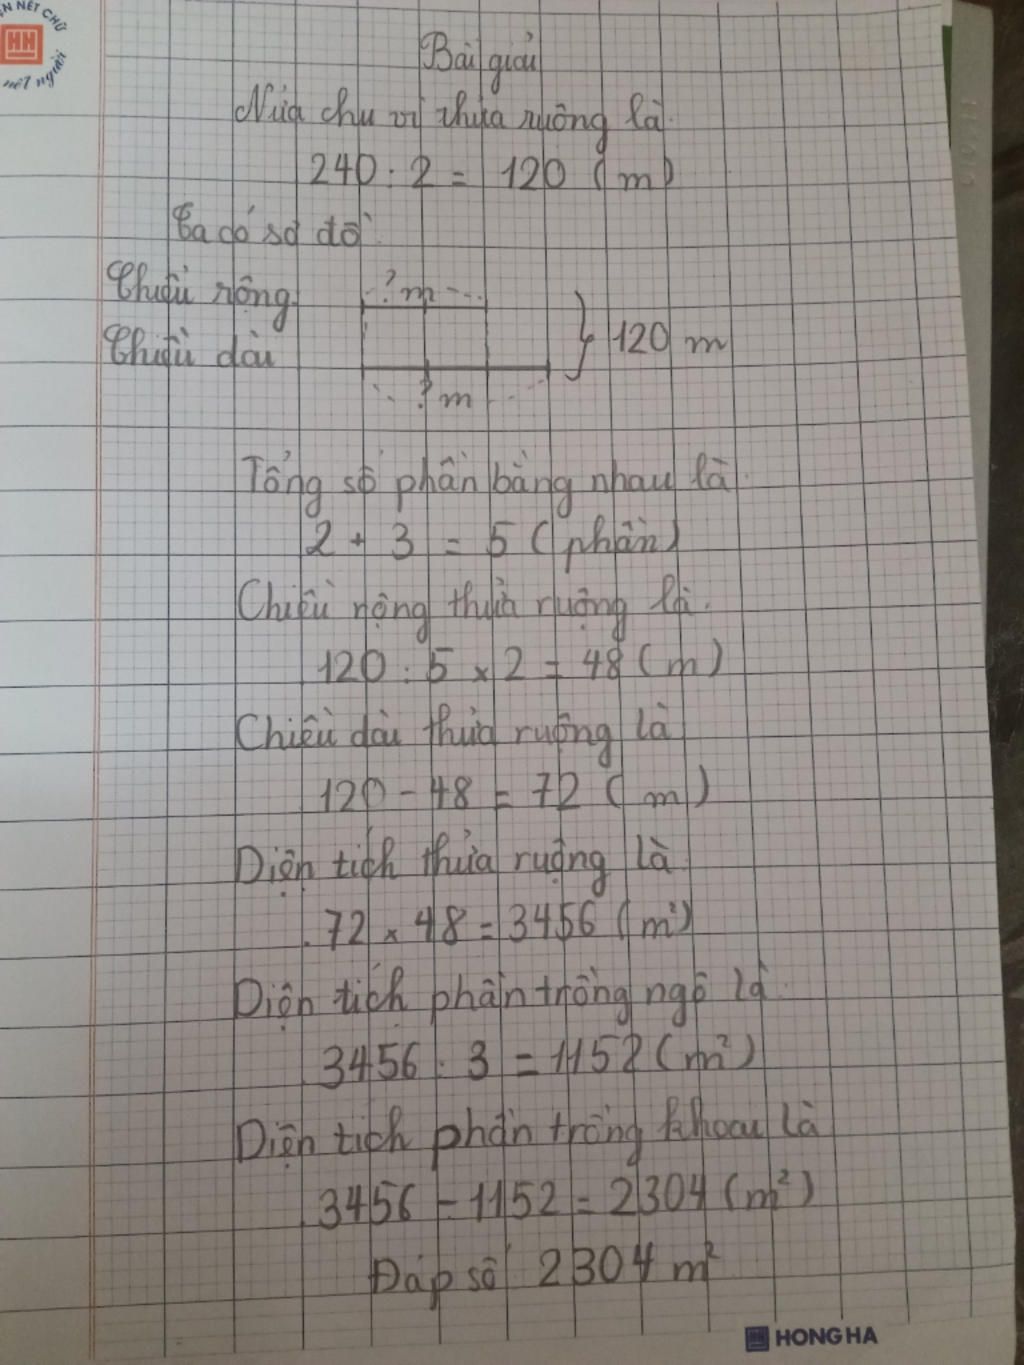 N NÉT CHỮ
HH
nét người
Bài giải
Nửa chu vi thửa ruộng là:
240 : 2 = 120 (m)
Ta có sơ đồ:
Chiều rộng ? m
120 m
Chiều dài
? m
Tổng số phần bằng nhau là:
2 + 3 = 5 (phần)
Chiều rộng thửa ruộng là:
120 : 5 x 2 = 48 (m)
Chiều dài thửa ruộng là
120 - 48 = 72 (m)
Diện tích thửa ruộng là
72 x 48 = 3456 (m²)
Diện tích phần trồng ngô là:
3456 : 3 = 1152 (m²)
Diện tích phần trồng khoai là
3456 - 1152 = 2304 (m²)
Đáp số 2304 m²
HONG HA